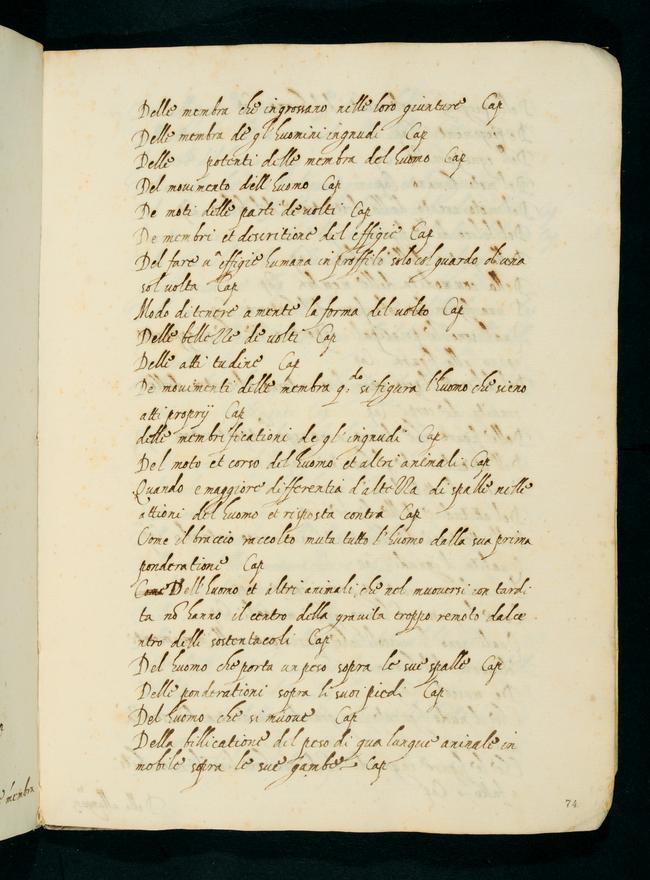 Delle membra che ingrossano nelle loro giunture Cap
Delle membra de gl'huomini ingnudi Cap
Delle potenti delle membra del huomo Cap
Del movimento dell'huomo Cap
De moti delle parti de volti Cap
De membri et discritione del effigie Cap
Del fare un effigie humana in proffilo solo col guardo d'una
sol volta Cap
Modo di tenere a mente la forma del volto Cap
Delle bellezze de volti Cap
Delle atti tudine Cap
De movimenti delle membra q.do si figura l'huomo che sieno
atti proprij Cap
delle membrificationi de gl'ingnudi Cap
Del moto et corso del huomo et altri animali Cap
Quando e maggiore differentia d'altezza di spalle nelle
attioni del huomo et risposta contra Cap
Come il braccio raccolto muta tutto l'huomo dalla sua prima
ponderatione Cap
Dell'huomo et altri animali che nel muoversi con tardi
ta nō hanno il centro della gravita troppo remoto dal ce
ntro delli sostentacoli Cap
Del huomo che porta un peso sopra le sue spalle Cap
Delle ponderationi sopra li suoi piedi Cap
Del huomo che si muove Cap
Della billicatione del peso di qua lunque animale in
mobile sopra le sue gambe Cap
74
membra